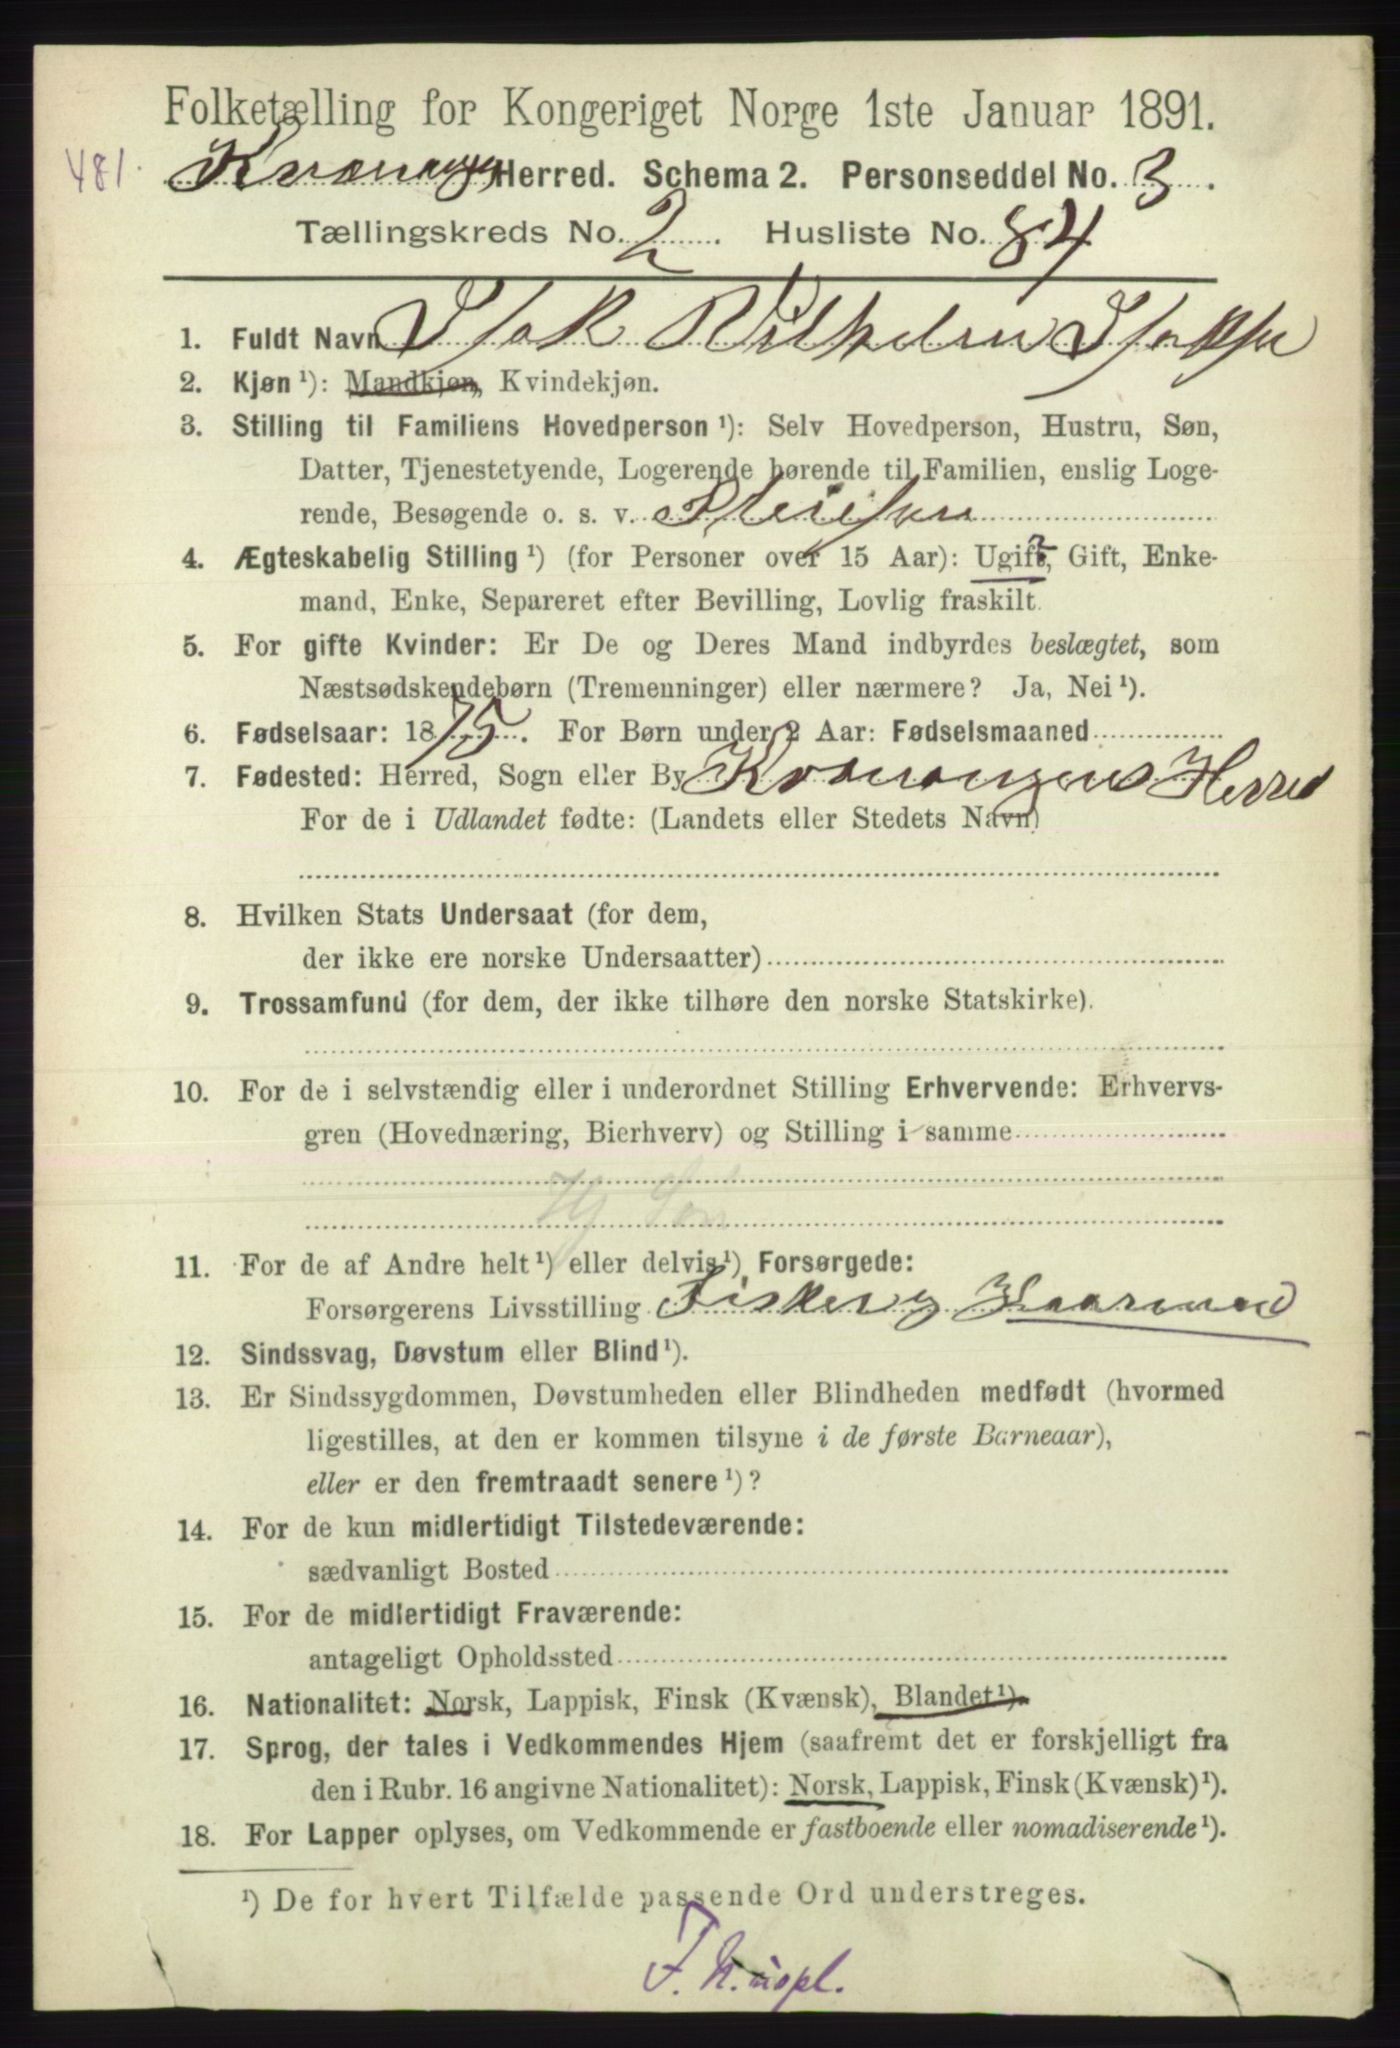 Folketælling for Kongeriget Norge 1ste Januar 1891.
481.
Kvænangen Herred. Schema 2. Personseddel No. 3.
Tællingskreds No. 2. Husliste No. 84
1. Fuldt Navn Isak Vilhelm Isaksen
2. Kjøn ¹): Mandkjøn, Kvindekjøn.
3. Stilling til Familiens Hovedperson ¹): Selv Hovedperson, Hustru, Søn,
Datter, Tjenestetyende, Logerende hørende til Familien, enslig Loge-
rende, Besøgende o. s. v. Pleiesøn
4. Ægteskabelig Stilling ¹) (for Personer over 15 Aar): Ugift, Gift, Enke-
mand, Enke, Separeret efter Bevilling, Lovlig fraskilt.
5. For gifte Kvinder: Er De og Deres Mand indbyrdes beslægtet, som
Næstsødskendebørn (Tremenninger) eller nærmere? Ja, Nei ¹).
6. Fødselsaar: 1875. For Børn under 2 Aar: Fødselsmaaned
7. Fødested: Herred, Sogn eller By Kvænangens Herred
For de i Udlandet fødte: (Landets eller Stedets Navn)
8. Hvilken Stats Undersaat (for dem,
der ikke ere norske Undersaatter)
9. Trossamfund (for dem, der ikke tilhøre den norske Statskirke).
10. For de i selvstændig eller i underordnet Stilling Erhvervende: Erhvervs-
gren (Hovednæring, Bierhverv) og Stilling i samme
Hj Søn
11. For de af Andre helt ¹) eller delvis ¹) Forsørgede:
Forsørgerens Livsstilling Fisker og Gaarmand
12. Sindssvag, Døvstum eller Blind ¹).
13. Er Sindssygdommen, Døvstumheden eller Blindheden medfødt (hvormed
ligestilles, at den er kommen tilsyne i de første Barneaar),
eller er den fremtraadt senere ¹)?
14. For de kun midlertidigt Tilstedeværende:
sædvanligt Bosted
15. For de midlertidigt Fraværende:
antageligt Opholdssted
16. Nationalitet: Norsk, Lappisk, Finsk (Kvænsk), Blandet ¹).
17. Sprog, der tales i Vedkommendes Hjem (saafremt det er forskjelligt fra
den i Rubr. 16 angivne Nationalitet): Norsk, Lappisk, Finsk (Kvænsk) ¹).
18. For Lapper oplyses, om Vedkommende er fastboende eller nomadiserende ¹).
¹) De for hvert Tilfælde passende Ord understreges.